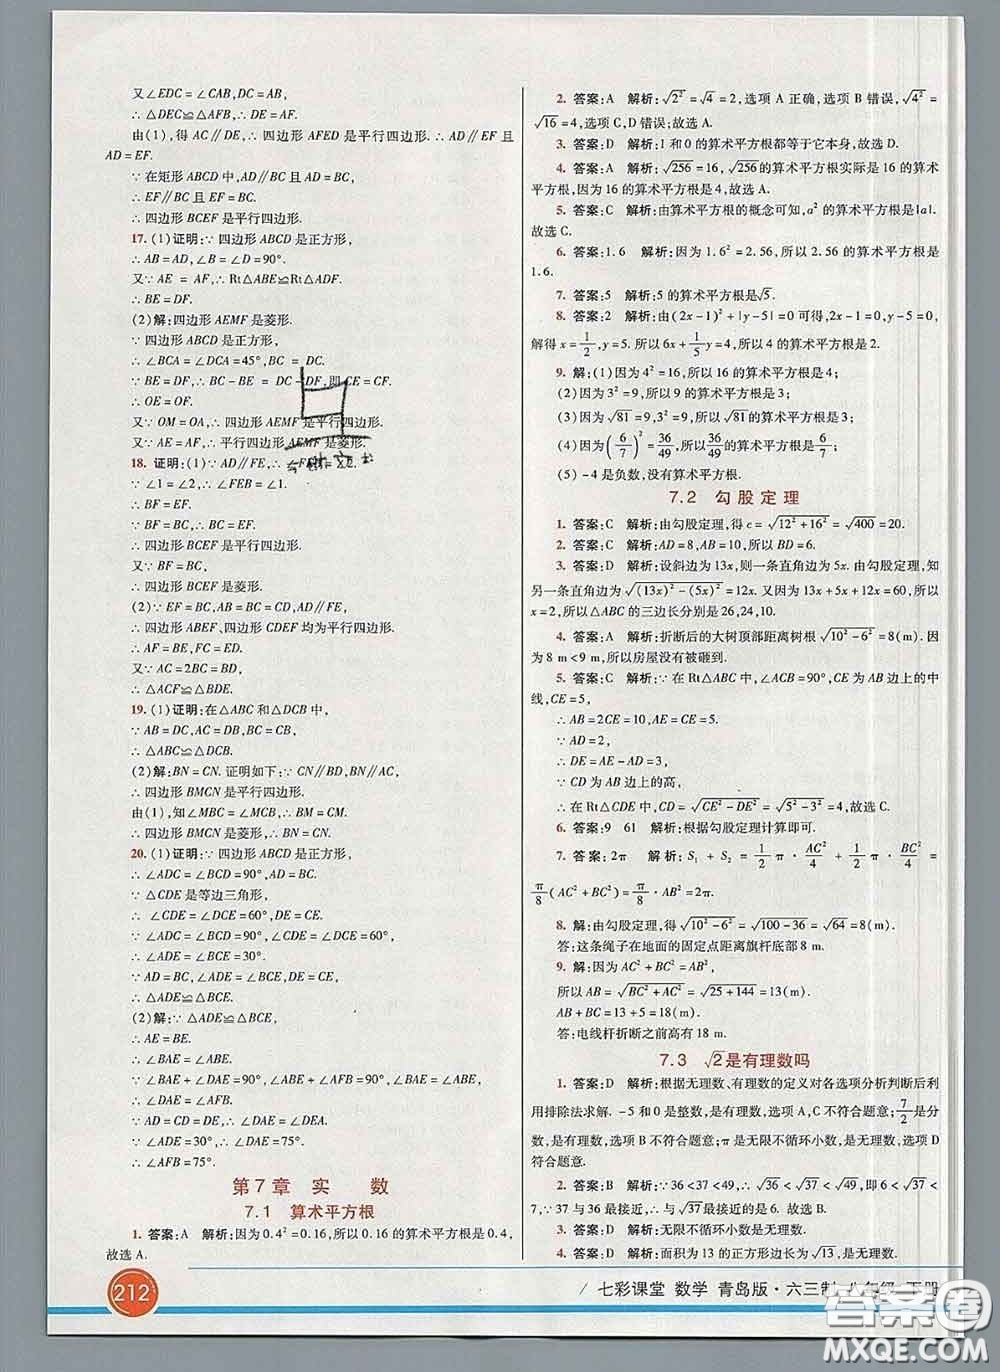 又∠EDC=∠CAB,DC=AB,
∴△DEC≌△AFB,∴DE=AF.
由(1),得 AC∥DE,∴四边形 AFED 是平行四边形.∴AD∥EF 且
AD=EF.
∵在矩形 ABCD 中,AD∥BC 且 AD=BC,
∴EF∥BC 且 EF=BC.
∴四边形 BCEF 是平行四边形.
17. (1)证明:∵四边形 ABCD 是正方形,
∴AB=AD,∠B=∠D=90°.
又∵AE=AF,∴Rt△ABE≌Rt△ADF.
∴BE=DF.
(2)解:四边形 AEMF 是菱形.
∵四边形 ABCD 是正方形,
∴∠BCA=∠DCA=45°,BC=DC.
∵BE=DF,∴BC-BE=DC-DF,即 CE=CF.
∴OE=OF.
又∵OM=OA,∴四边形 AEMF 是平行四边形.
又∵AE=AF,∴平行四边形 AEMF 是菱形.
18. 证明:(1)∵AD∥FE,∴∠FEB=∠2.
∵∠1=∠2,∴∠FEB=∠1.
∴BF=EF.
∵BF=BC,∴BC=EF.
∴四边形 BCEF 是平行四边形.
又∵BF=BC,
∴四边形 BCEF 是菱形.
(2)∵EF=BC,AB=BC=CD,AD∥EF,
∴四边形 ABEF、四边形 CDEF 均为平行四边形.
∴AF=BE,FC=ED.
又∵AC=2BC=BD,
∴△ACF≌△BDE.
19. (1)证明:在△ABC 和△DCB 中,
∵AB=DC,AC=DB,BC=CB,
∴△ABC≌△DCB.
(2)解:BN=CN. 证明如下:∵CN∥BD,BN∥AC,
∴四边形 BMCN 是平行四边形.
由(1),知∠MBC=∠MCB,∴BM=CM.
∴四边形 BMCN 是菱形,∴BN=CN.
20. (1)证明:∵四边形 ABCD 是正方形,
∴∠ADC=∠BCD=90°,AD=BC.
∵△CDE 是等边三角形,
∴∠CDE=∠DCE=60°,DE=CE.
∵∠ADC=∠BCD=90°,∠CDE=∠DCE=60°,
∴∠ADE=∠BCE=30°.
∵AD=BC,∠ADE=∠BCE,DE=CE,
∴△ADE≌△BCE.
(2)解:∵△ADE≌△BCE,
∴AE=BE.
∴∠BAE=∠ABE.
∵∠BAE+∠DAE=90°,∠ABE+∠AFB=90°,
∴∠DAE=∠AFB.
∵AD=CD=DE,∴∠DAE=∠DEA.
∵∠ADE=30°,∴∠DAE=75°.
∴∠AFB=75°.
第7章 实 数
7.1 算术平方根
1. 答案:A 解析:因为 0.4²=0.16,所以 0.16 的算术平方根是 0.4,
故选 A.
2. 答案:A 解析:√2²=√4=2,选项 A 正确,选项 B 错误,√4²=
√16=4,选项 C,D 错误;故选 A.
3. 答案:D 解析:1 和 0 的算术平方根都等于它本身,故选 D.
4. 答案:A 解析:√256=16,√256的算术平方根实际是 16 的算术
平方根,因为 16 的算术平方根是 4,故选 A.
5. 答案:C 解析:由算术平方根的概念可知,a² 的算术平方根是|a|.
故选 C.
6. 答案:1.6 解析:因为 1.6²=2.56,所以 2.56 的算术平方根是
1.6.
7. 答案:5 解析:5 的算术平方根是√5.
8. 答案:2 解析:由(2x-1)²+|y-5|=0 可得,2x-1=0,y-5=0,
解得 x=1/2,y=5. 所以 6x+1/5y=4,所以 4 的算术平方根是 2.
9. 解:(1)因为 4²=16,所以 16 的算术平方根是 4;
(2)因为 3²=9,所以 9 的算术平方根是 3;
(3)因为√81=9,3²=9,所以√81的算术平方根是 3;
(4)因为(6/7)²=36/49,所以36/49的算术平方根是6/7;
(5)-4 是负数,没有算术平方根.
7.2 勾股定理
1. 答案:C 解析:由勾股定理,得 c=√(12²+16²)=√400=20.
2. 答案:C 解析:AD=8,AB=10,所以 BD=6.
3. 答案:D 解析:设斜边为 13x,则一条直角边为 5x. 由勾股定理,知
另一条直角边为√((13x)²-(5x)²)=12x. 又因为 13x+5x+12x=60,所以
x=2,所以△ABC 的三边长分别是 26,24,10.
4. 答案:A 解析:折断后的大树顶部距离树根√(10²-6²)=8(m). 因
为 8 m<9 m,所以房屋没有被砸到.
5. 答案:C 解析:∵在 Rt△ABC 中,∠ACB=90°,CE 为 AB 边上的中
线,CE=5,
∴AB=2CE=10,AE=CE=5.
∵AD=2,
∴DE=AE-AD=3.
∵CD 为 AB 边上的高,
∴在 Rt△CDE 中,CD=√(CE²-DE²)=√(5²-3²)=4,故选 C.
6. 答案:9 61 解析:根据勾股定理计算即可.
7. 答案:2π 解析:S₁+S₂=1/2π·AC²/4+1/2π·BC²/4=
π/8(AC²+BC²)=π/8·AB²=2π.
8. 解:由勾股定理,得√(10²-6²)=√(100-36)=√64=8(m).
答:这条绳子在地面的固定点距离旗杆底部 8 m.
9. 解:因为 AC²+BC²=AB²,
所以 AB=√(BC²+AC²)=√(25+144)=13(m).
AB+BC=13+5=18(m).
答:电线杆折断之前高有 18 m.
7.3 √2是有理数吗
1. 答案:D 解析:根据无理数、有理数的定义对各选项分析判断后利
用排除法求解. -5 和 0 是整数,是有理数,选项 A,C 不符合题意;7/2是分
数,是有理数,选项 B 不符合题意;π 是无限不循环小数,是无理数,选项 D
符合题意.
2. 答案:B 解析:∵36<37<49,∴√36<√37<√49,即 6<√37<
7,∵37 与 36 最接近,∴与√37最接近的是 6.
3. 答案:D 解析:无限不循环小数是无理数.
4. 答案:D 解析:面积为 13 的正方形边长为√13,是无理数.
212
七彩课堂 数学 青岛版·六三制 八年级 下册
答案圈
MXQE.COM